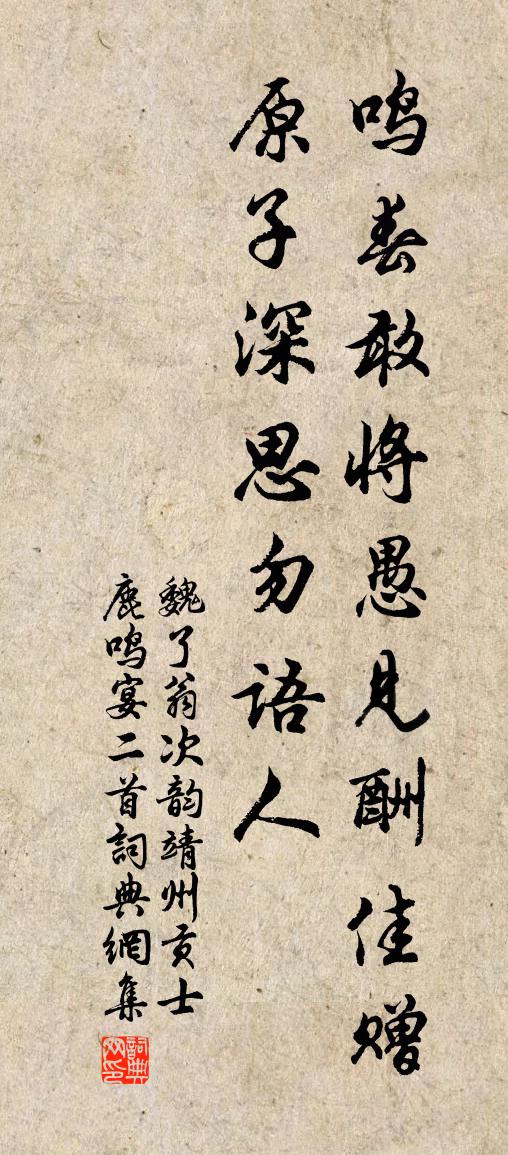 鸣春敢将愚见酬佳赠
原子深思勿语人
魏了翁次韵靖州贡士
鹿鸣宴二首詞典網集
詞典
网印